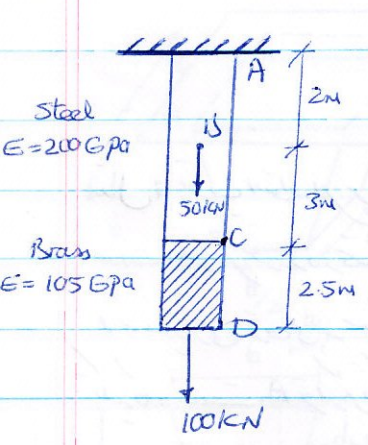 A
2m
Steel
E=200Gpa
B
50KN
3m
C
Brass
E=105Gpa
2.5m
D
100KN